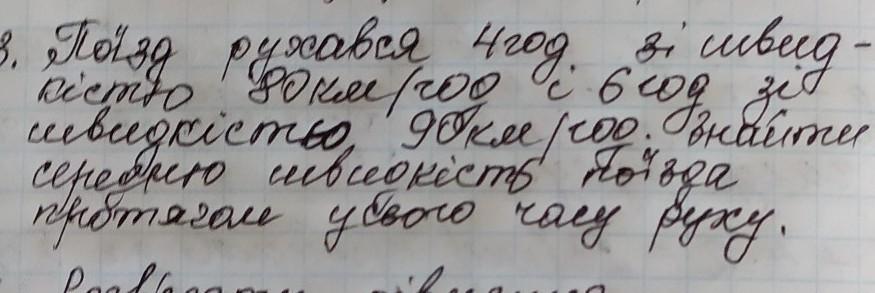 3. Поїзд рухався 4год. зі швид-
кістю 80км/год і 6год зі
швидкістю 90км/год. Знайти
середню швидкість поїзда
протягом усього часу руху.
Розв'язати рівняння